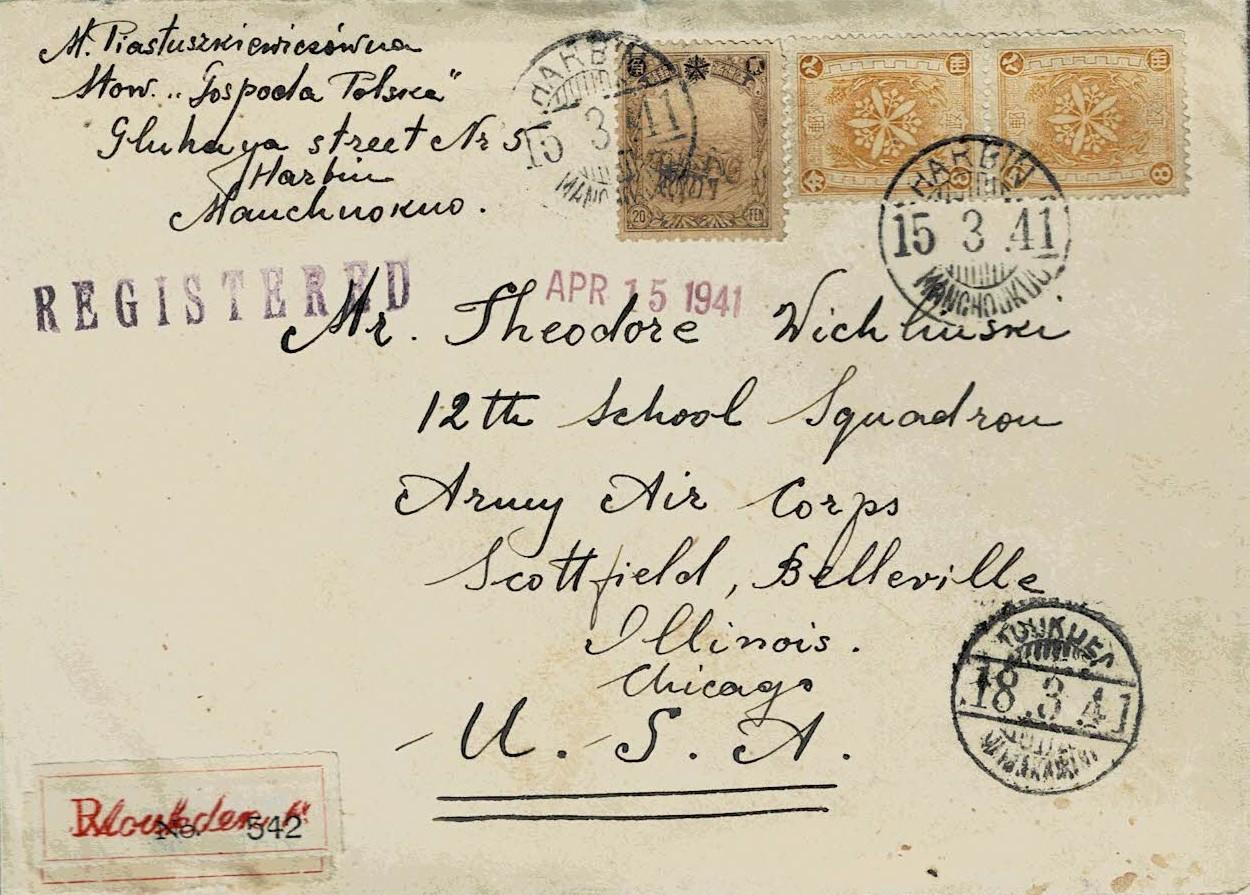 M. Piastuszkiewiczówna
Stow. „Gospoda Polska"
Gluhaya street Nr 5
Harbin
Manchuokuo.
20 FEN
8
8
HARBIN
15 3 41
HARBIN
15 3 .41
MANCHOUKUO
REGISTERED
APR 15 1941
Mr. Theodore
12th School Squadron
Army Air Corps
Scottfield, Belleville
Illinois.
Chicago
U. S. A.
18 .3 .41
R No. 542